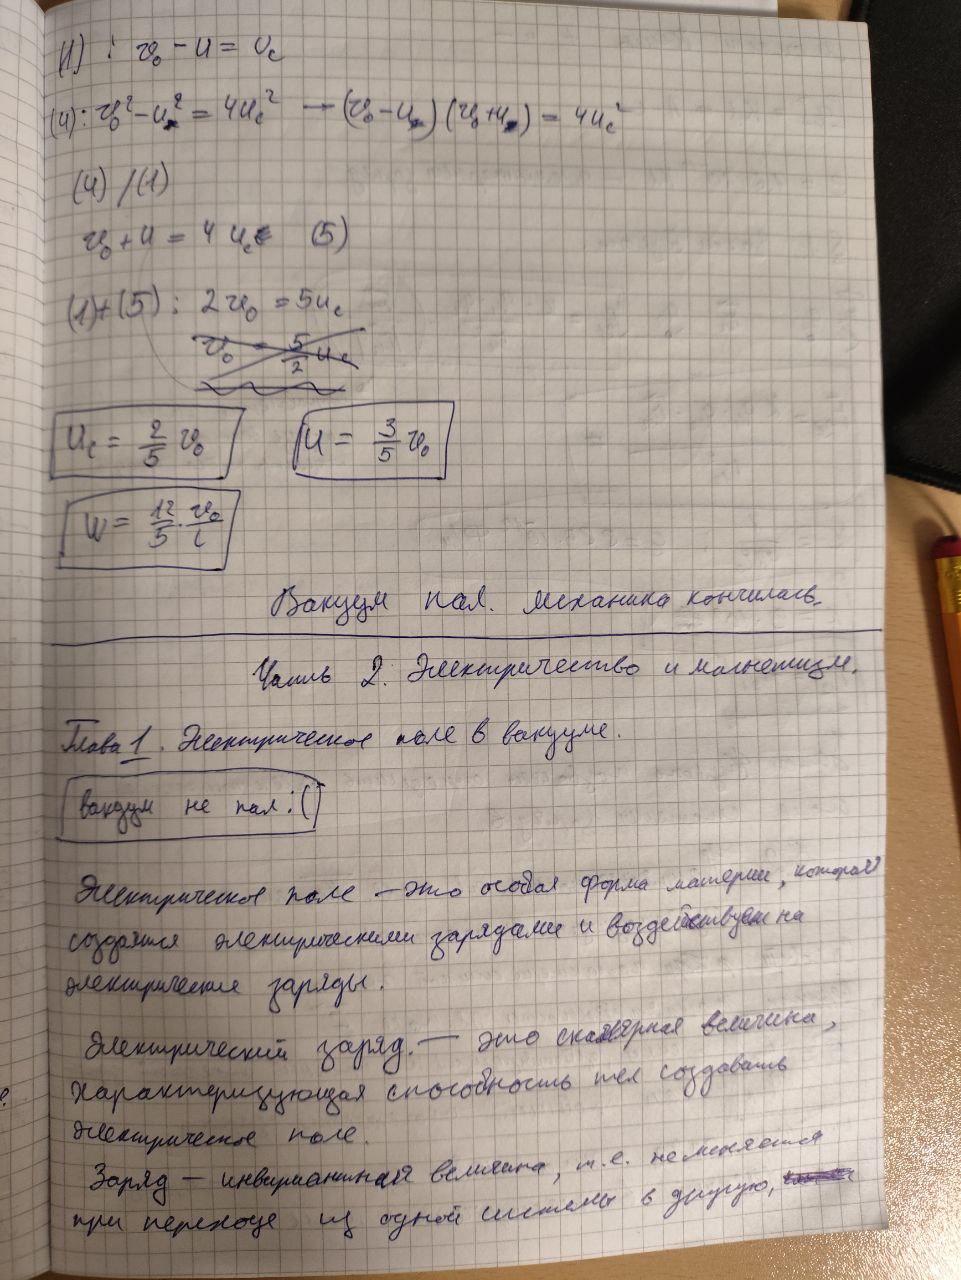 (1): v₀ - u = u_c
(4): v₀² - u² = 4u_c² → (v₀ - u)(v₀ + u) = 4u_c²
(4)/(1)
v₀ + u = 4u_c (5)
(1)+(5): 2v₀ = 5u_c
v₀ = 5/2 u_c
u_c = 2/5 v₀ u = 3/5 v₀
w = 12/5 · v₀/l
Вакуум пал. Механика кончилась.
Часть 2. Электричество и магнетизм.
Глава 1. Электрическое поле в вакууме.
вакуум не пал :(
Электрическое поле — это особая форма материи, которая
создаётся электрическими зарядами и воздействует на
электрические заряды.
Электрический заряд. — это скалярная величина,
характеризующая способность тел создавать
электрическое поле.
Заряд — инвариантная величина, т.е. не меняется
при переходе из одной системы в другую,